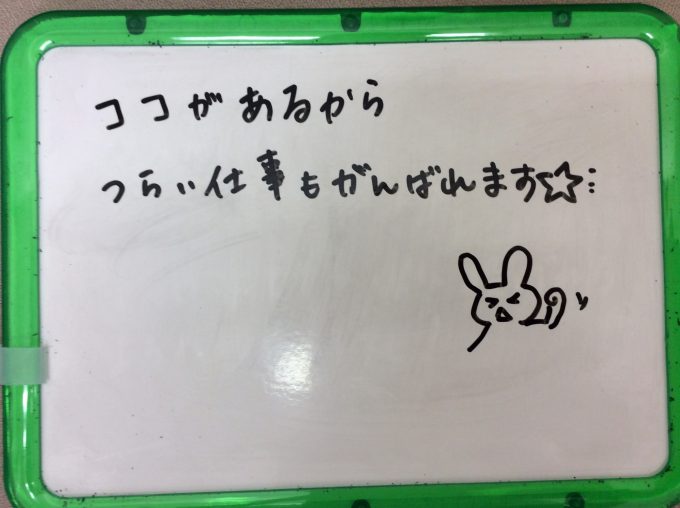 ココがあるから
つらい仕事もがんばれます☆: